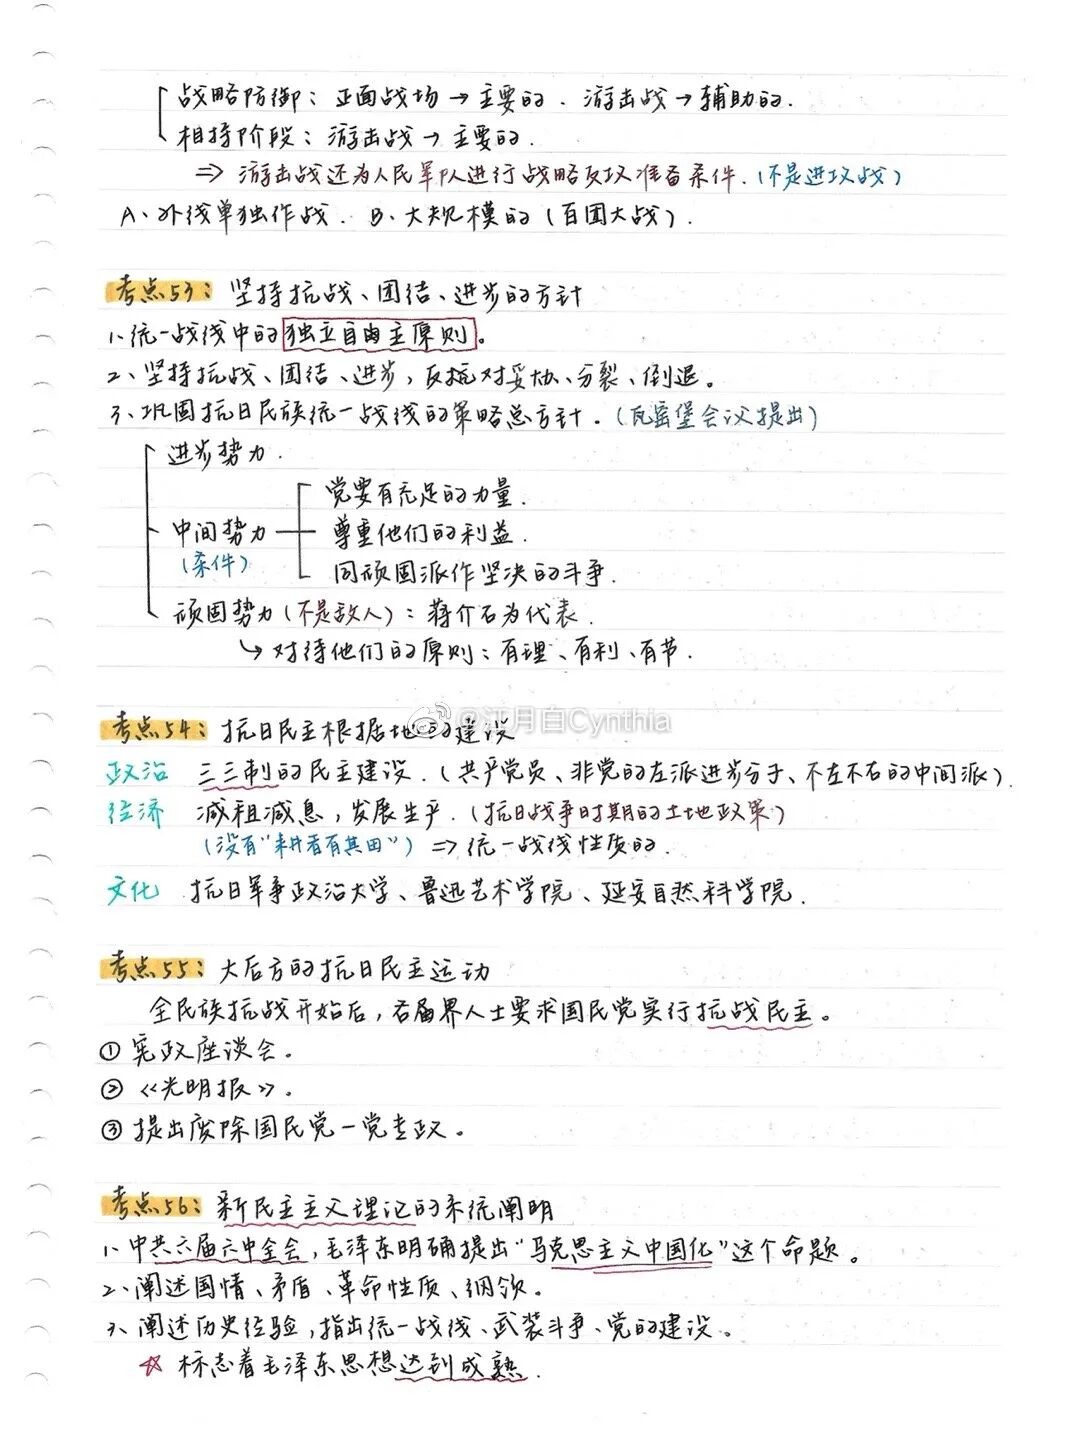 战略防御：正面战场→主要的．游击战→辅助的．
相持阶段：游击战→主要的．
⇒ 游击战还为人民军队进行战略反攻准备条件．（不是进攻战）
A、外线单独作战． B、大规模的（百团大战）．
考点53：坚持抗战、团结、进步的方针
1、统一战线中的独立自由主原则。
2、坚持抗战、团结、进步，反抗对妥协、分裂、倒退。
3、巩固抗日民族统一战线的策略总方针．（瓦窑堡会议提出）
进步势力．
党要有充足的力量．
中间势力 尊重他们的利益．
（条件）
同顽固派作坚决的斗争．
顽固势力（不是敌人）：蒋介石为代表．
↳ 对待他们的原则：有理、有利、有节．
考点54：抗日民主根据地的建设
@江月白Cynthia
政治 三三制的民主建设．（共产党员、非党的左派进步分子、不左不右的中间派）．
经济 减租减息，发展生产．（抗日战争时期的土地政策）
（没有“耕者有其田”）⇒ 统一战线性质的．
文化 抗日军事政治大学、鲁迅艺术学院、延安自然科学院．
考点55：大后方的抗日民主运动
全民族抗战开始后，各届界人士要求国民党实行抗战民主。
① 宪政座谈会。
② 《光明报》。
③ 提出废除国民党一党专政。
考点56：新民主主义理论的系统阐明
1、中共六届六中全会，毛泽东明确提出“马克思主义中国化”这个命题。
2、阐述国情、矛盾、革命性质、纲领。
3、阐述历史经验，指出统一战线、武装斗争、党的建设。
☆ 标志着毛泽东思想达到成熟．